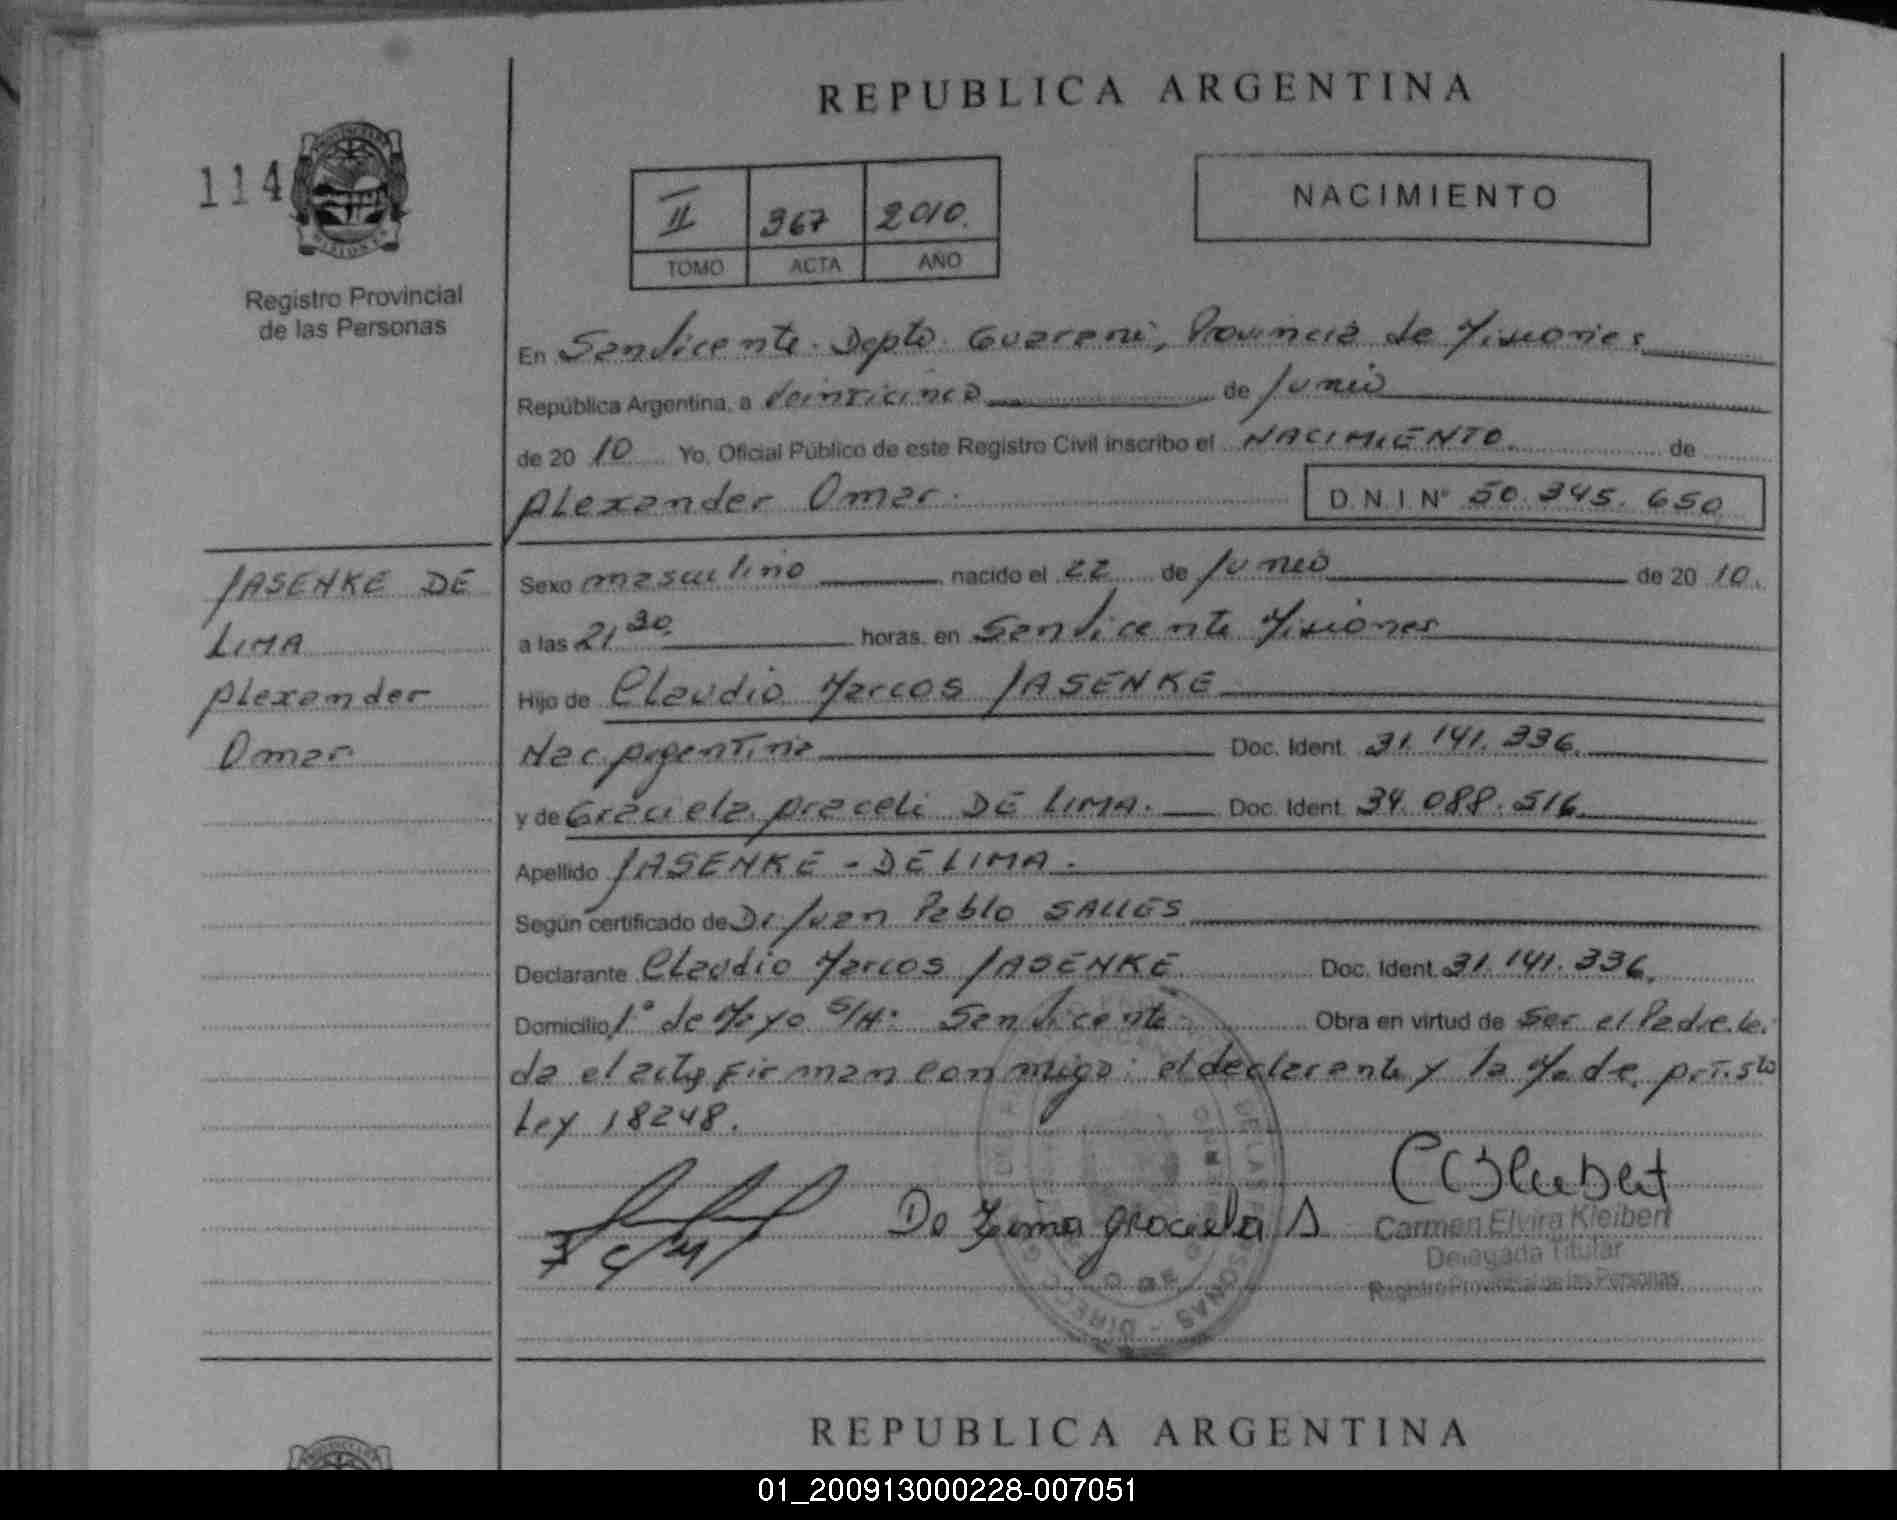 REPUBLICA ARGENTINA
114
II 367 2010.
TOMO ACTA AÑO
NACIMIENTO
Registro Provincial
de las Personas
En San Vicente. Depto. Guarani, Provincia de Misiones
República Argentina, a Veinticinco de Junio
de 20 10 Yo, Oficial Público de este Registro Civil inscribo el NACIMIENTO. de
Alexander Omar. D.N.I. Nº 50.345.650
JASENKE DE
LIMA
Alexander
Omar
Sexo masculino nacido el 22 de Junio de 20 10.
a las 21,30 horas, en San Vicente Misiones
Hijo de Claudio Marcos JASENKE
Nac. Argentina Doc. Ident. 31.141.336.
y de Graciela Araceli DE LIMA. Doc. Ident. 34.088.516
Apellido JASENKE - DE LIMA.
Según certificado de Dr Juan Pablo SALLES
Declarante Claudio Marcos JASENKE Doc. Ident. 31.141.336.
Domicilio 1º de Mayo S/Nº San Vicente Obra en virtud de Ser el Padre. Lei
da el acta firman conmigo: el declarante y la Made. Art. 5to
Ley 18248.
De Lima graciela A
Carmen Elvira Kleibert
Delegada Titular
Registro Provincial de las Personas
REPUBLICA ARGENTINA
01_200913000228-007051